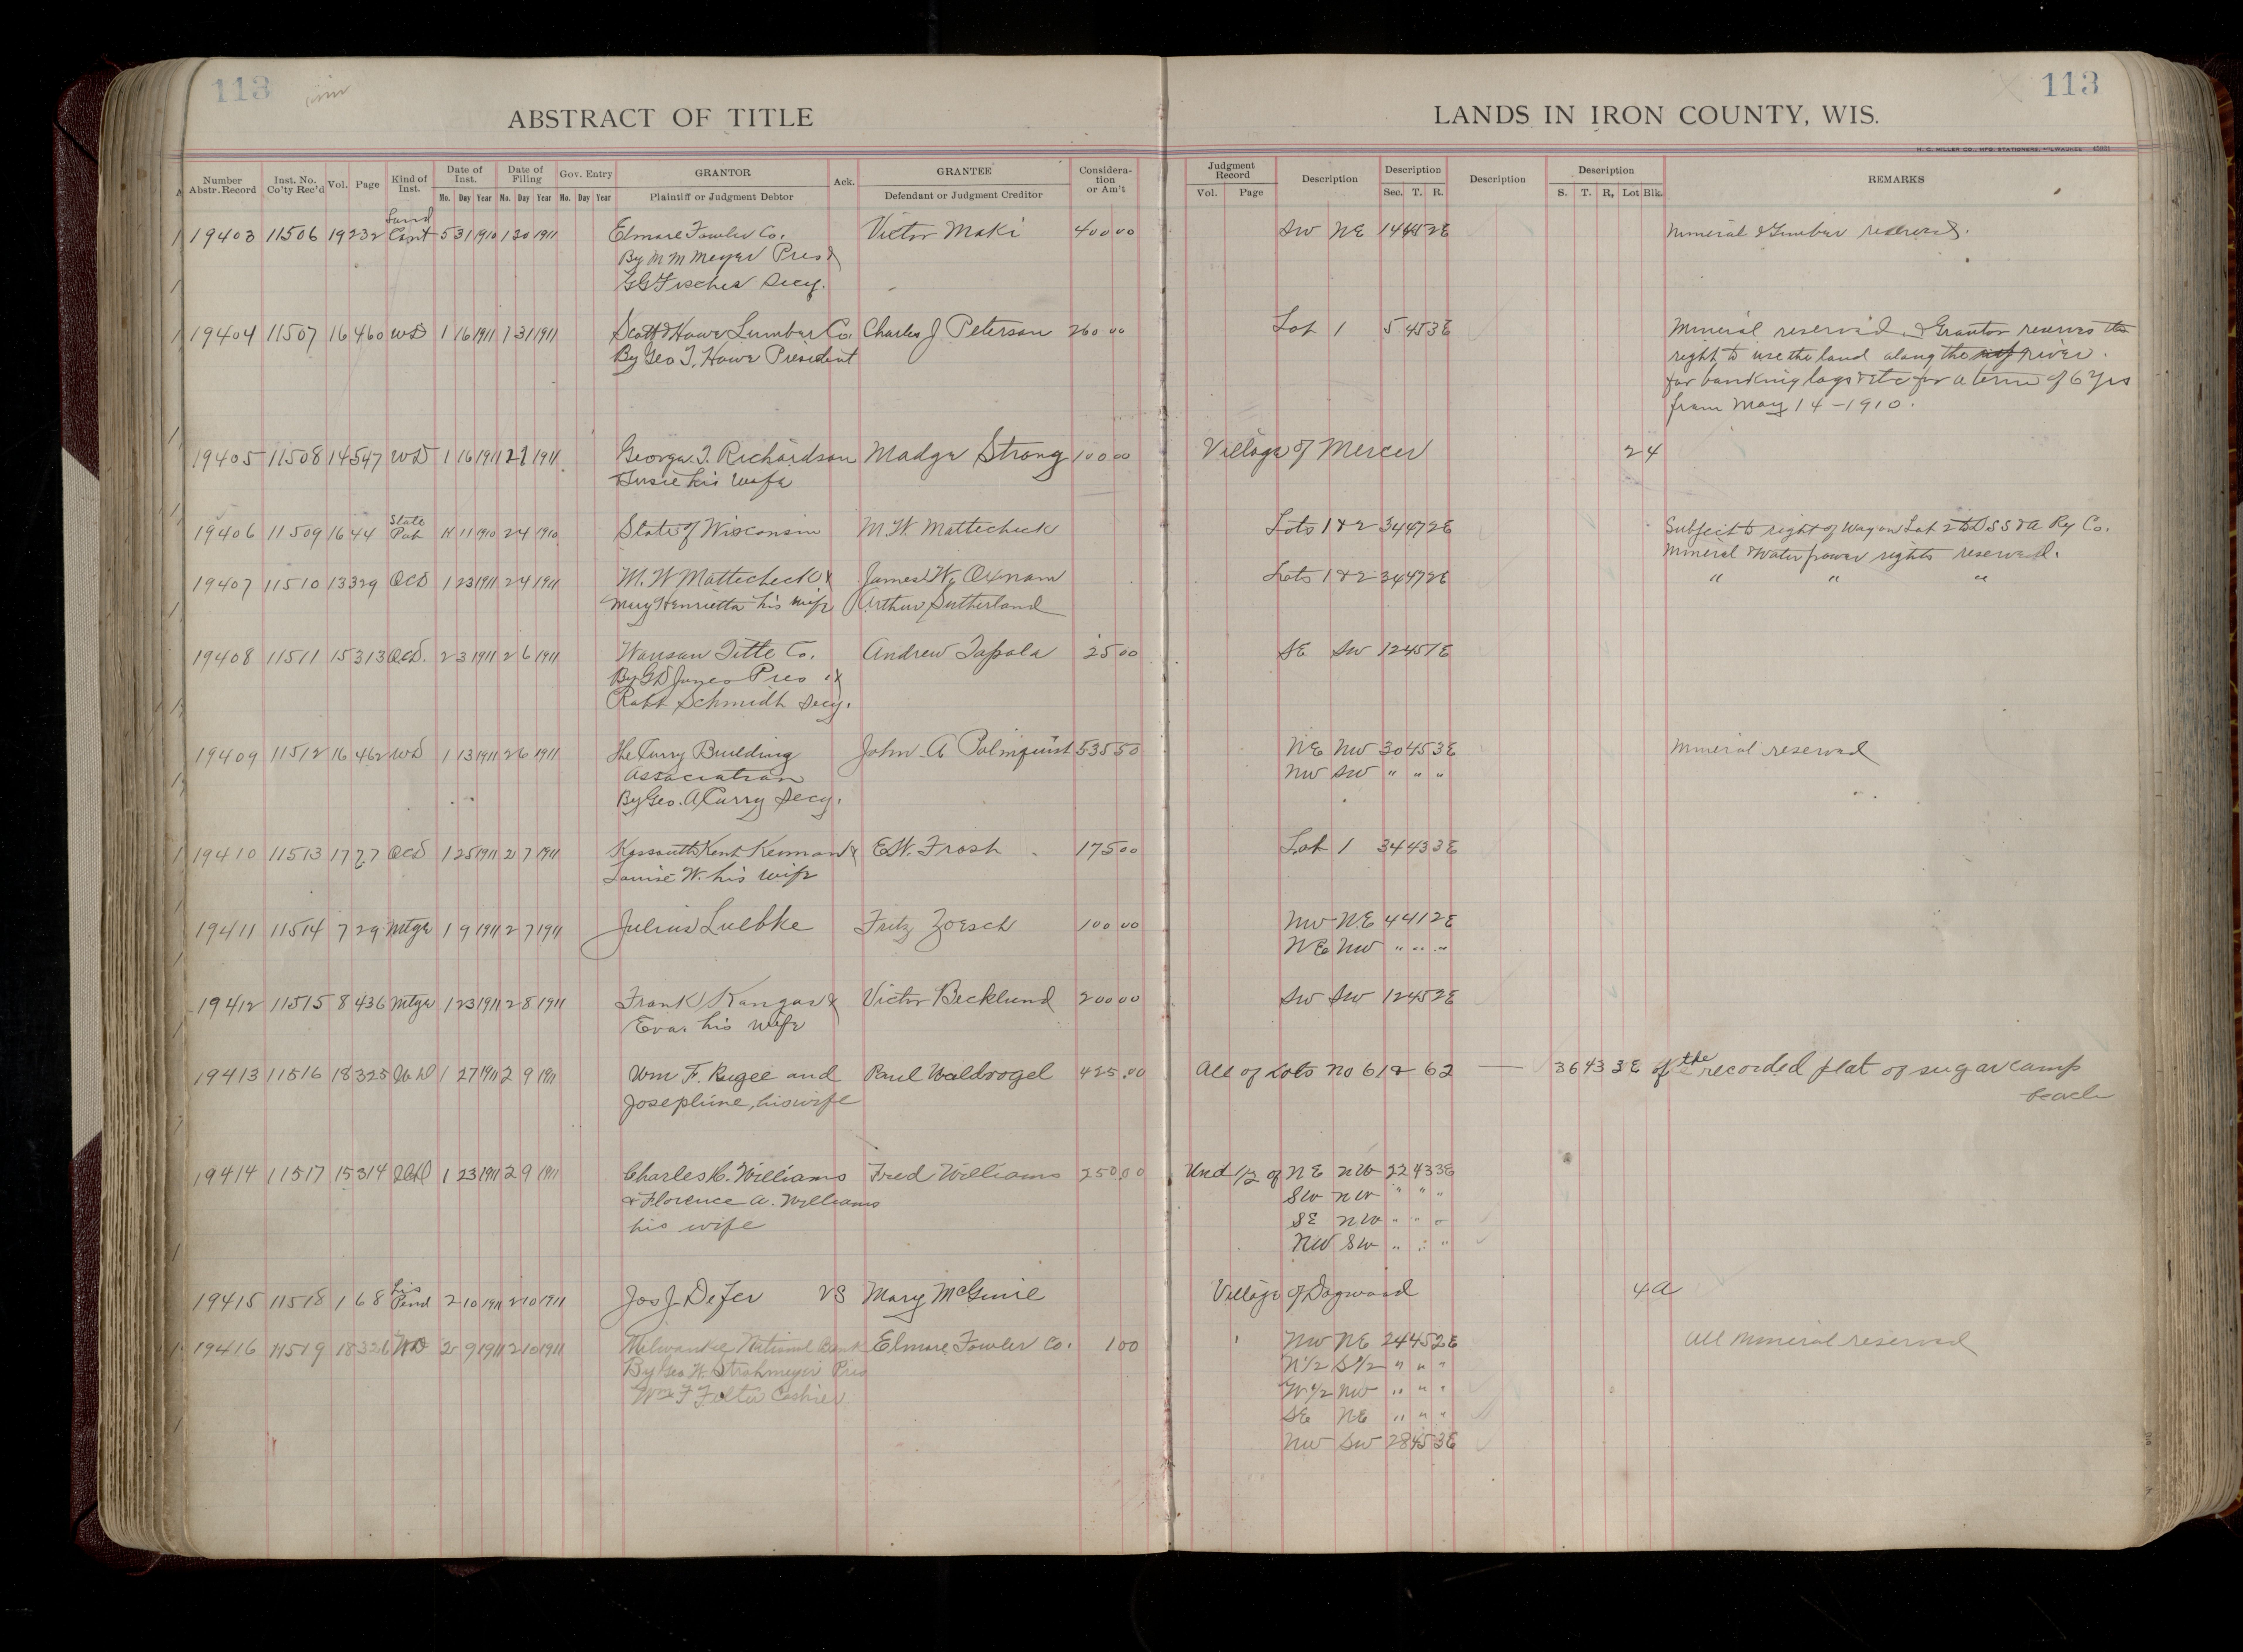 113
113
ABSTRACT OF TITLE
LANDS IN IRON COUNTY, WIS.
H. C. MILLER CO., MFG. STATIONERS, MILWAUKEE
Number Abstr. Record | Inst. No. Co'ty Rec'd | Vol. | Page | Kind of Inst. | Date of Inst. Mo. Day Year | Date of Filing Mo. Day Year | Gov. Entry Mo. Day Year | GRANTOR Plaintiff or Judgment Debtor | Ack. | GRANTEE Defendant or Judgment Creditor | Considera-tion or Am't | Judgment Record Vol. Page | Description | Description Sec. T. R. | Description | Description S. T. R. Lot Blk. | REMARKS
19403 11506 19 232 Land Cont 5 31 1910 1 30 1911 Elmore Fowler Co. Victor Maki 400 00 SW NE 14 45 2E Mineral & Timber reserved.
By M M Meyer Pres &
G G Fischer Secy.
19404 11507 16 460 WD 1 16 1911 1 31 1911 Scott & Howe Lumber Co. Charles J Peterson 260 00 Lot 1 5 45 3E Mineral reserved. & Grantor reserves the
By Geo T. Howe President right to use the land along the river.
for banking logs & etc for a term of 6 yrs
from May 14 - 1910.
19405 11508 14 547 WD 1 16 1911 2 1 1911 George T. Richardson Madge Strong 100 00 Village of Mercer 2 4
& Susie his wife
19406 11509 16 44 State Pat 11 1910 2 4 1910 State of Wisconsin M. W. Mattecheck Lots 1 & 2 34 47 2E Subject to right of way on Lot 2 to D S S & A Ry Co.
Mineral & Water power rights reserved.
19407 11510 13 329 QCD 1 23 1911 2 4 1911 M. W Mattecheck & James W. Oxnam Lots 1 & 2 34 47 2E " " "
Mary Henrietta his wife Arthur Sutherland
19408 11511 15 313 QCD. 2 3 1911 2 6 1911 Wausau Title Co. Andrew Tapala 25 00 SE SW 12 45 1E
By G D Jones Pres &
Robt Schmidt Secy.
19409 11512 16 462 WD 1 13 1911 2 6 1911 The Curry Building John A Palmquist 535 50 NE NW 30 45 3E Mineral reserved
Association NW SW " " "
By Geo. A Curry Secy.
19410 11513 17 77 QCD 1 25 1911 2 7 1911 Kossouth Kent Kennan & E. W. Frosh 175 00 Lot 1 34 43 3E
Louise W. his wife
19411 11514 7 29 Mtge 1 9 1911 2 7 1911 Julius Luebke Fritz Zoesch 100 00 NW NE 4 41 2E
NE NW " " "
19412 11515 8 436 Mtge 1 23 1911 2 8 1911 Frank Kangas & Victor Becklund 200 00 SW SW 12 45 2E
Eva. his wife
19413 11516 18 325 WD 1 27 1911 2 9 1911 Wm F. Rugee and Paul Waldvogel 425.00 All of Lots No 61 & 62 — 36 43 3E of the recorded plat of sugar camp
Josephine, his wife beach
19414 11517 15 314 QCD 1 23 1911 2 9 1911 Charles C. Williams Fred Williams 250.00 Und 1/2 of NE NW 22 43 3E
& Florence A. Williams SW NW " " "
his wife SE NW " " "
NW SW " " "
19415 11518 1 68 Lis Pend 2 10 1911 2 10 1911 Jos J. Defer VS Mary McGuire Village of Dogwood 4 A
19416 11519 18 326 WD 2 9 1911 2 10 1911 Milwaukee National Bank Elmore Fowler Co. 1 00 NW NE 24 45 2E All Mineral reserved
By Geo W. Strohmeyer Pres N 1/2 S 1/2 " " "
Wm F Cashier W 1/2 NW " " "
SE NE " " "
NW SW 28 45 3E